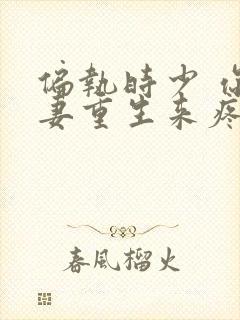 偏執時少 你
妻重生来疼
春風榴火